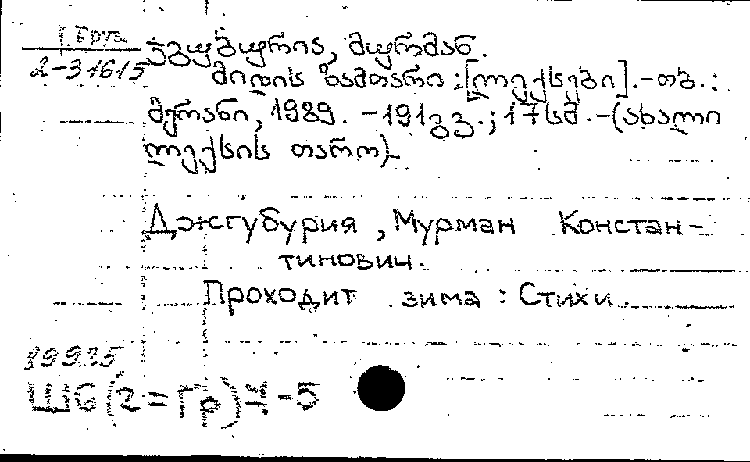 Груз.
2-31615
ჯგუბურია, მურმან.
მიდის ზამთარი : [ლექსები]. - თბ. :
მერანი, 1989. - 191 გვ. ; 17 სმ. - (ახალი
ლექსის თარო).
Джгубурия, Мурман Констан-
тинович.
Проходит зима : Стихи.
89935
Ш6(2=Гр)7-5